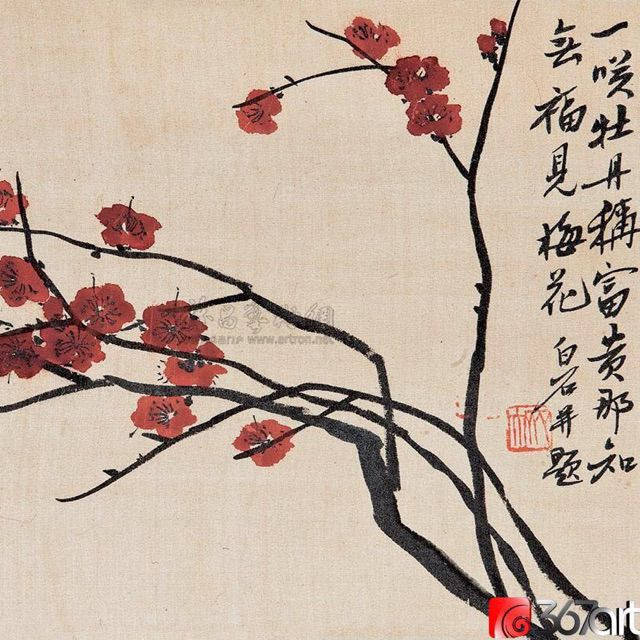 一咲牡丹稱富貴那知
無福見梅花 白石并題
昌藝術網
www.artron.net
367art